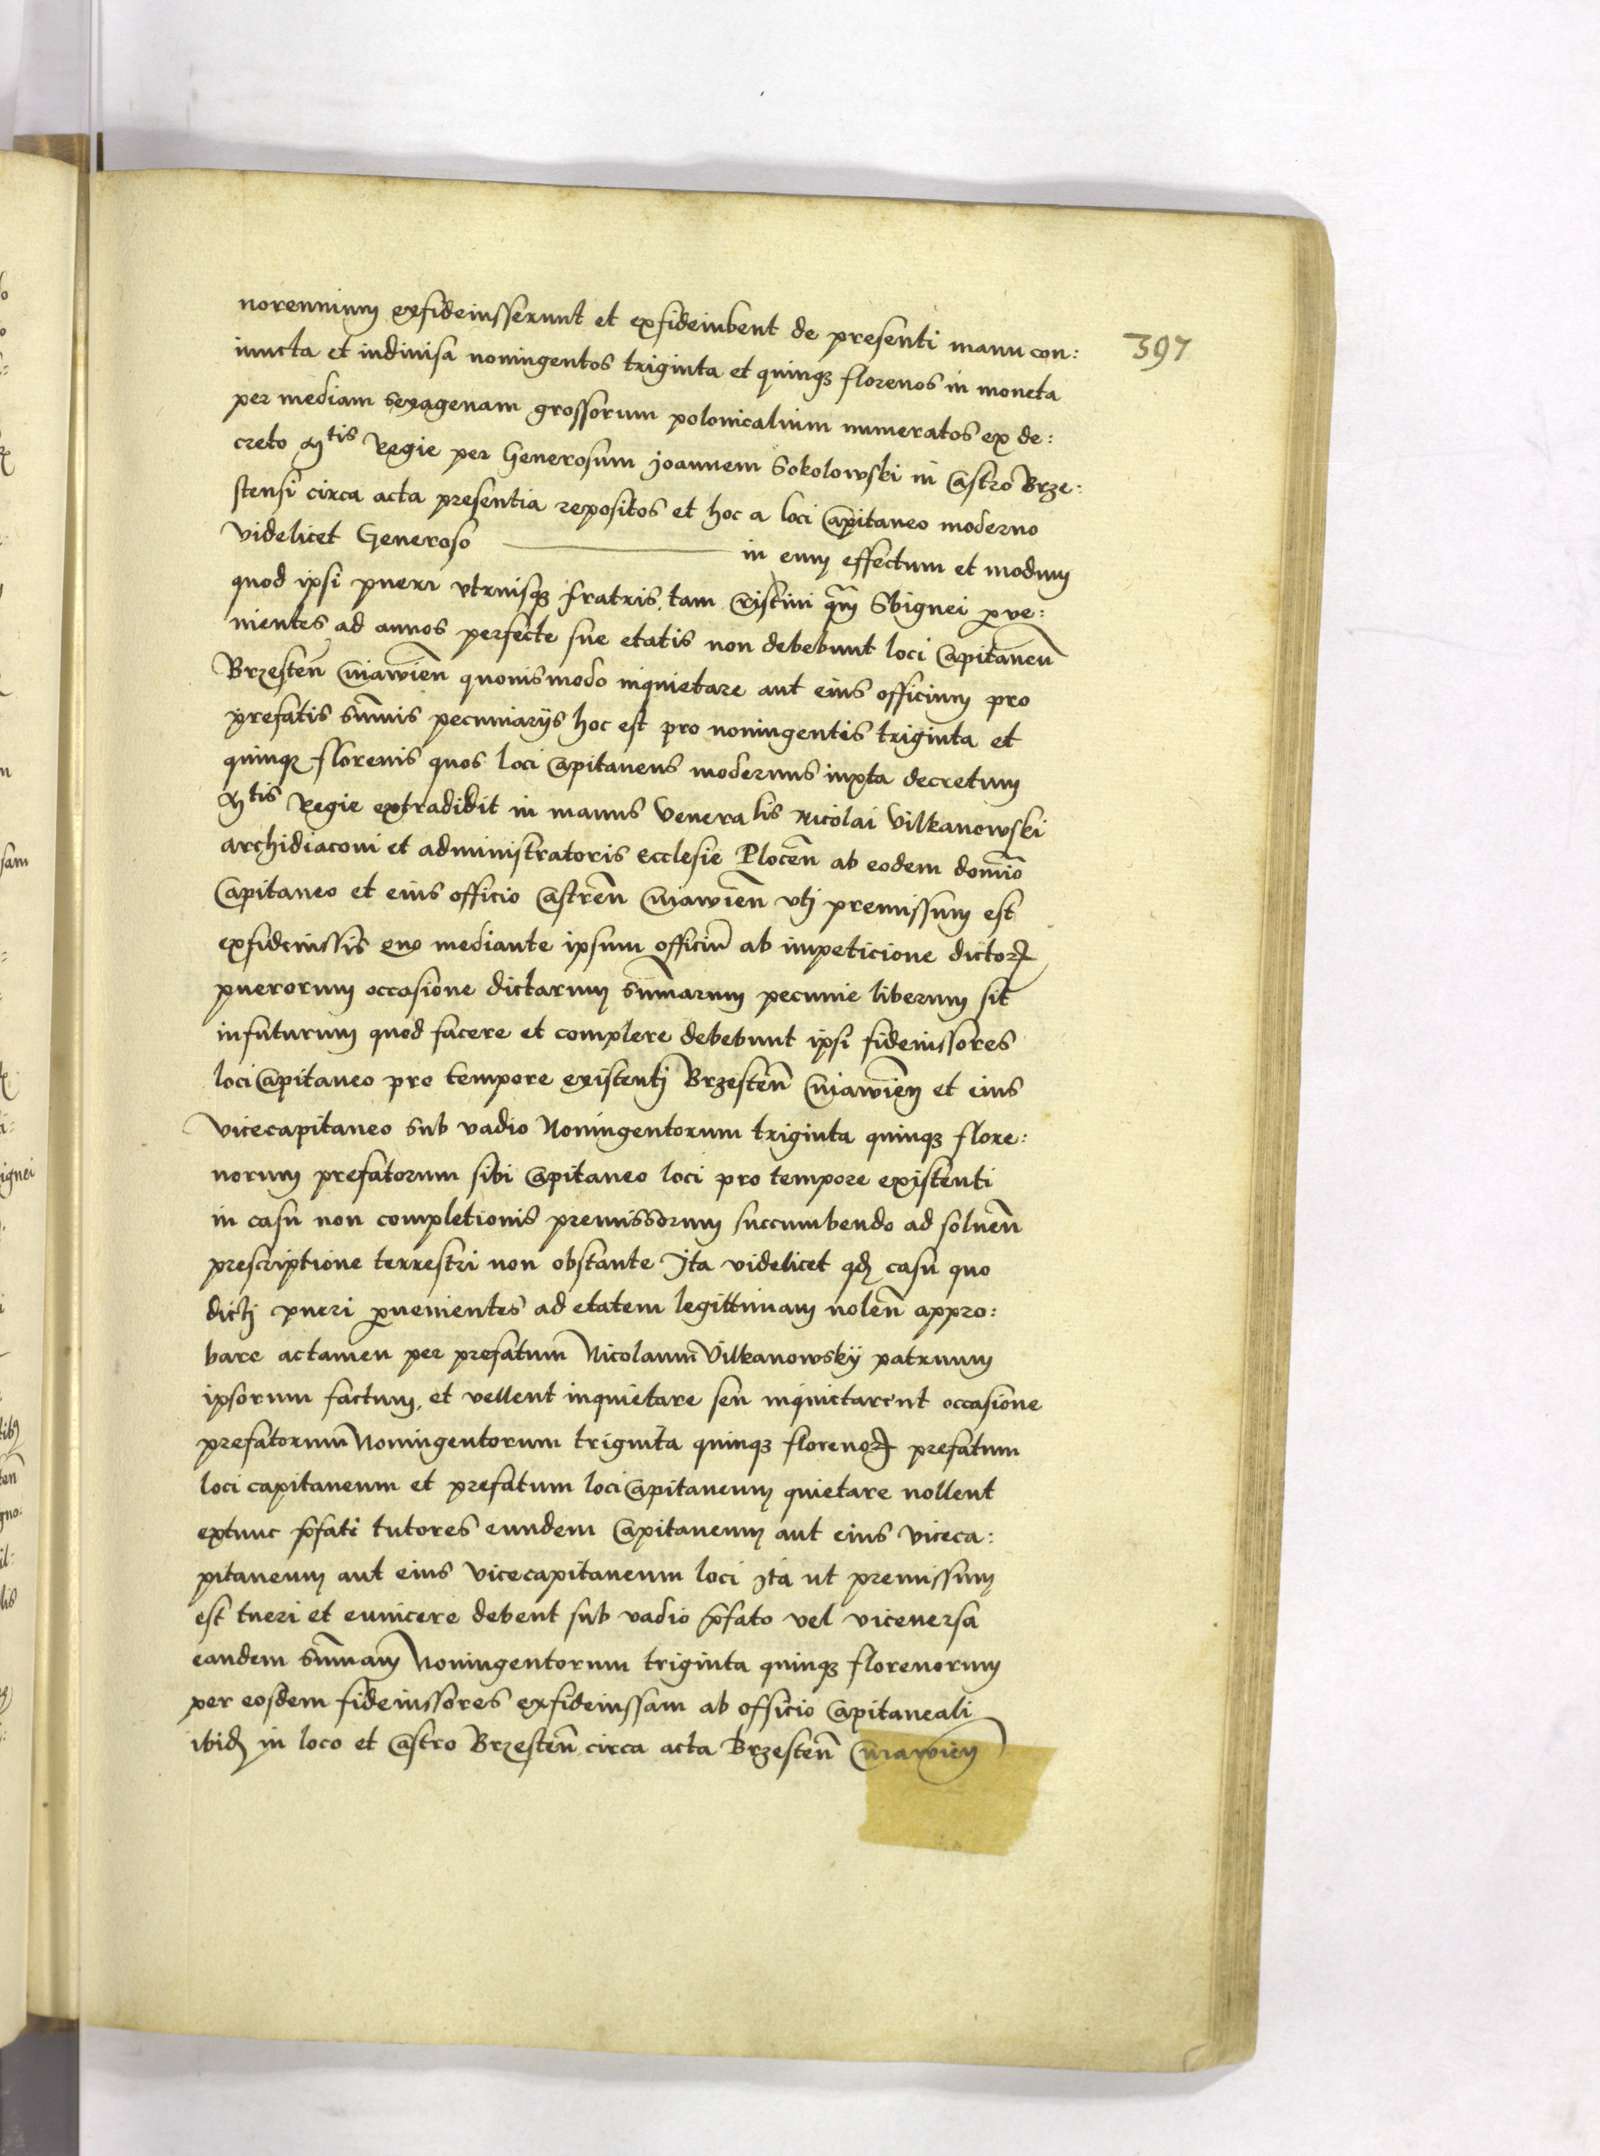 norennium exfideiusserunt et exfideiubent de presenti manu con:
397
iuncta et indiuisa noningentos triginta et quinqꝫ florenos in moneta
per mediam sexagenam grossorum polonicalium numeratos ex de:
creto Mtis Regie per Generosum Joannem Sokolowski in Castro Brze:
stensi circa acta presentia repositos et hoc a loci Capitaneo moderno
videlicet Generoso ——— in eum effectum et modum
quod ipsi pueri vtriusqꝫ fratris, tam Cristini qm̄ Sbignei ꝑue:
nientes ad annos perfecte sue etatis non debebunt loci Capitaneū
Brzesten̄ Cuiawien̄ quouismodo inquietare aut eius officium pro
prefatis sum̄is pecuniarijs hoc est pro noningentis triginta et
quinqꝫ florenis quos loci Capitaneus modernus iuxta decretum
Mtis Regie extradidit in manus Venera lis Nicolai Vilkanowski
archidiaconi et administratoris Ecclesie Plocen̄ ab eodem domīo
Capitaneo et eius officio Castren̄ Cuiawien̄ vti premissum est
exfideiussis quo mediante ipsum officiū ab impeticione dictoꝝ
puerorum occasione dictarum sum̄arum pecunie liberum sit
infuturum quod facere et complere debebunt ipsi fideiussores
loci Capitaneo pro tempore existenti Brzesten̄ Cuiawien̄ et eius
vicecapitaneo sub vadio Noningentorum triginta quinqꝫ flore:
norum prefatorum sibi Capitaneo loci pro tempore existenti
in casu non completionis premissorum succumbendo ad soluen̄
prescriptione terrestri non obstante Ita videlicet qd casu quo
dicti pueri ꝑuenientes ad etatem legittimam nolen̄ appro:
bare actamen per prefatum Nicolaum Vilkanowskij patruum
ipsorum factum, et vellent inquietare seu inquietarent occasione
prefatorum Noningentorum triginta quinqꝫ florenoꝝ prefatum
loci capitaneum et prefatum loci Capitaneum quietare nollent
extunc p̄fati tutores eundem Capitaneum aut eius viceca:
pitaneum aut eius vicecapitaneum loci Ita ut premissum
est tueri et euincere debent sub vadio p̄fato vel viceuersa
eandem sum̄am Noningentorum triginta quinqꝫ florenorum
per eosdem fideiussores exfideiussam ab officio Capitaneali
ibid in loco et Castro Brzesten̄ circa acta Brzesten̄ Cuiawien̄